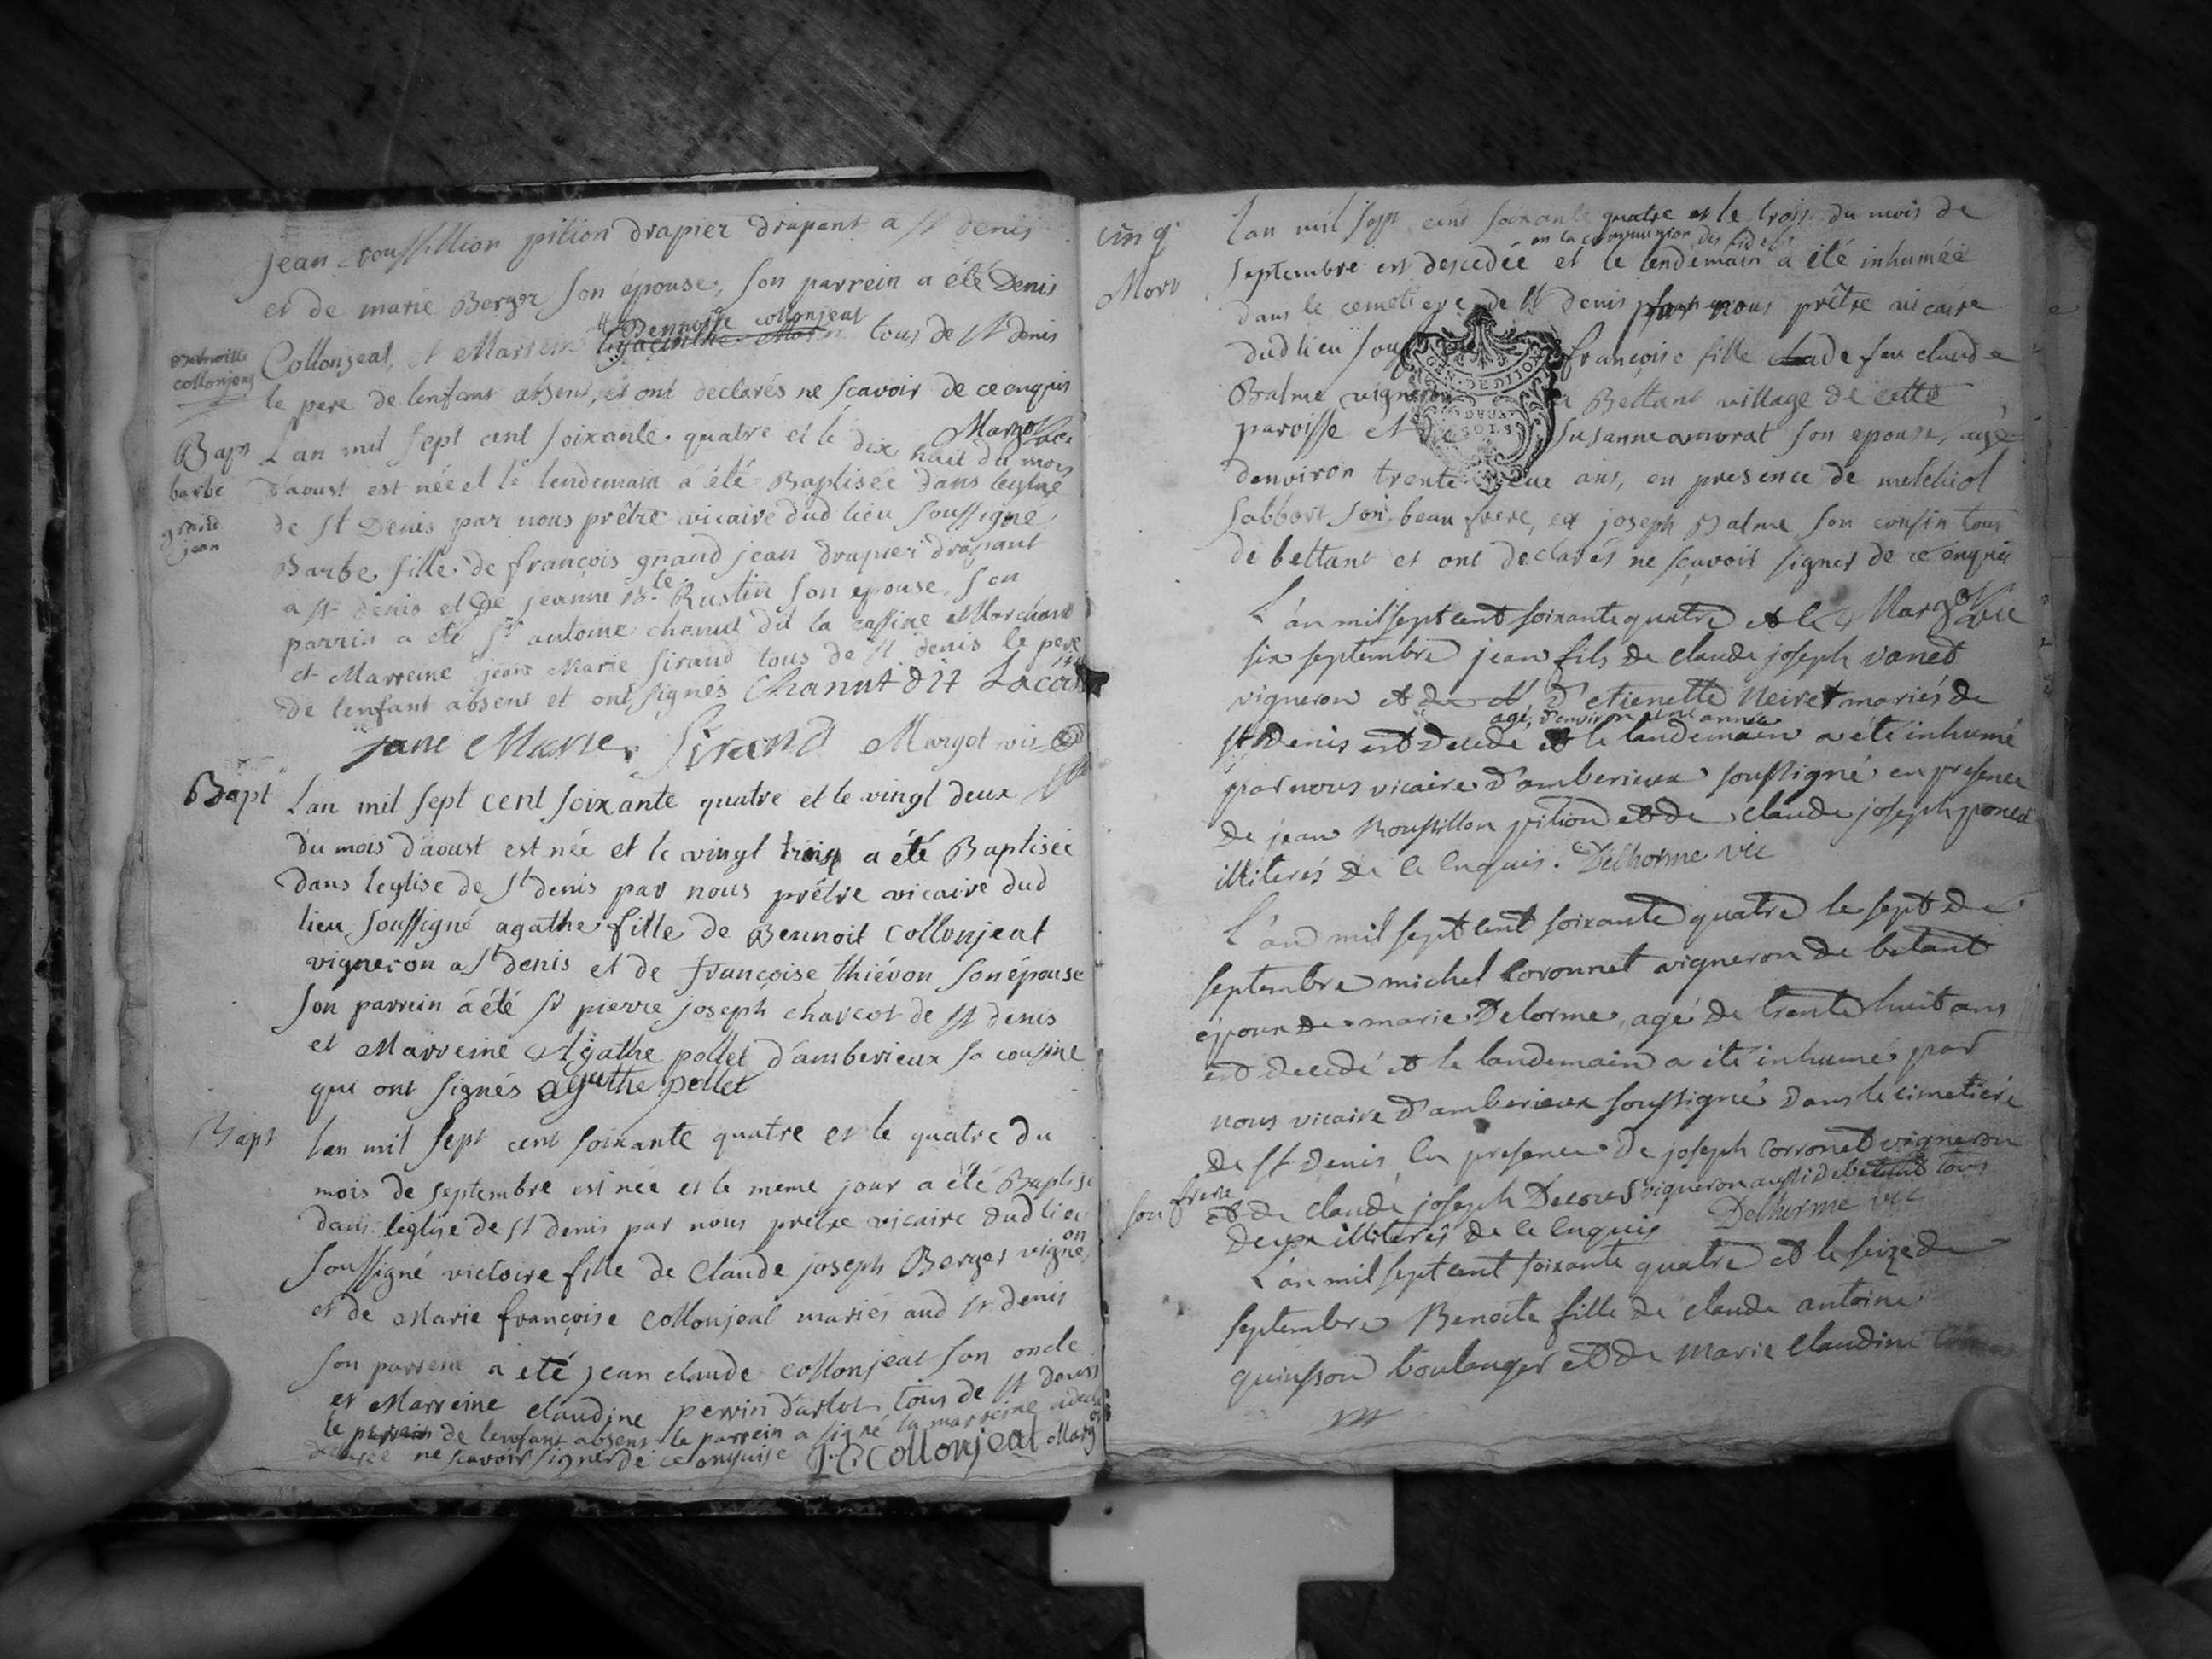 jean roussillion pition drapier drapent a st denis
et de marie Berger son épouse, son parrein a été Denis
Bennoitte collonjeat
Collonjeat, et Marreine hyacinthe tous de st denis
Bennoitte
collonjeat
le pere de lenfant absent, et ont declarés ne scavoir de ce enquis
Margot vic
Bapt
barbe
grand
jean
L an mil sept cent soixante quatre et le dix huit du mois
d'aoust est née et le lendemain a été Baptisée dans leglise
de st Denis par nous prêtre vicaire dud lieu soussigné
Barbe fille de françois grand jean drapier drapant
a st denis et de jeanne Bte Rustin son epouse, son
parrin a eté sr antoine chanut dit la cassine Marchand
et Marreine jeane Marie sirand tous de st denis le pere
de lenfant absent et ont signés Chanut dit
jane Marie Sirand Margot vic
Bapt
Lan mil sept cent soixante quatre et le vingt deux
du mois d'aoust est née et le vingt trois a été Baptisée
dans leglise de st denis par nous prêtre vicaire dud
lieu soussigné agathe fille de Bennoit Collonjeat
vigneron a st denis et de françoise thiévon son épouse
son parrein a été sr pierre joseph charcot de st denis
et Marreine Agathe pollet d'amberieux sa cousine
qui ont signés agathe pollet
Bapt
lan mil sept cent soixante quatre et le quatre du
mois de septembre est née et le meme jour a été Baptisé
dans leglise de st denis par nous prêtre vicaire dud lieu
soussigné victoire fille de Claude joseph Berger vigneron
et de Marie françoise Collonjeat mariés aud st denis
son parrein a eté jean claude collonjeat son oncle
et Marreine claudine perrin d'arlot tous de st denis
le de lenfant absent le parrein a signé la marreine
ne scavoir signer de ce enquise J.C. Collonjeat Margot
cinq
Mort
Lan mil sept cent soixante quatre et le trois du mois de
en la communion des fideles
septembre est descedée et le lendemain a été inhumée
dans le cemetiere de st denis par nous prêtre vicaire
dud lieu françoise fille de feu claude
Balme vigneron a Bettant village de cette
GEN DE DIJON
DEUX
SOLS
paroisse et de susanne amorat son epouse, agé
denviron trente deux ans, en presence de melchiol
sabbort son beau frere, et joseph Balme son cousin tous
de bettant et ont declarés ne sçavoir signer de ce enquis
Margot vic
L'an mil sept cent soixante quatre et le
six septembre jean fils de claude joseph vanet
vigneron et d'etienette Neiret mariés de
agé d'environ une année
st Denis est decedé et le landemain a été inhumé
par nous vicaire d'amberieux soussigné en presence
de jean Roussillon pition et de claude joseph ponced
illiterés de ce enquis. Delhorme vic
L'an mil sept cent soixante quatre le sept de
septembre michel Coronnet vigneron de betant
epoux de marie Delorme, agé de trente huit ans
est decedé et le landemain a été inhumé par
nous vicaire d'amberieux soussigné dans le cimetiere
de st Denis en presence de joseph corronet vigneron
son frere
et de claude joseph vigneron aussi de betant tous
deux illiterés de ce enquis Delhorme vic
L'an mil sept cent soixante quatre et le seize de
septembre Benoite fille de claude antoine
quinsson boulanger et de Marie Claudine